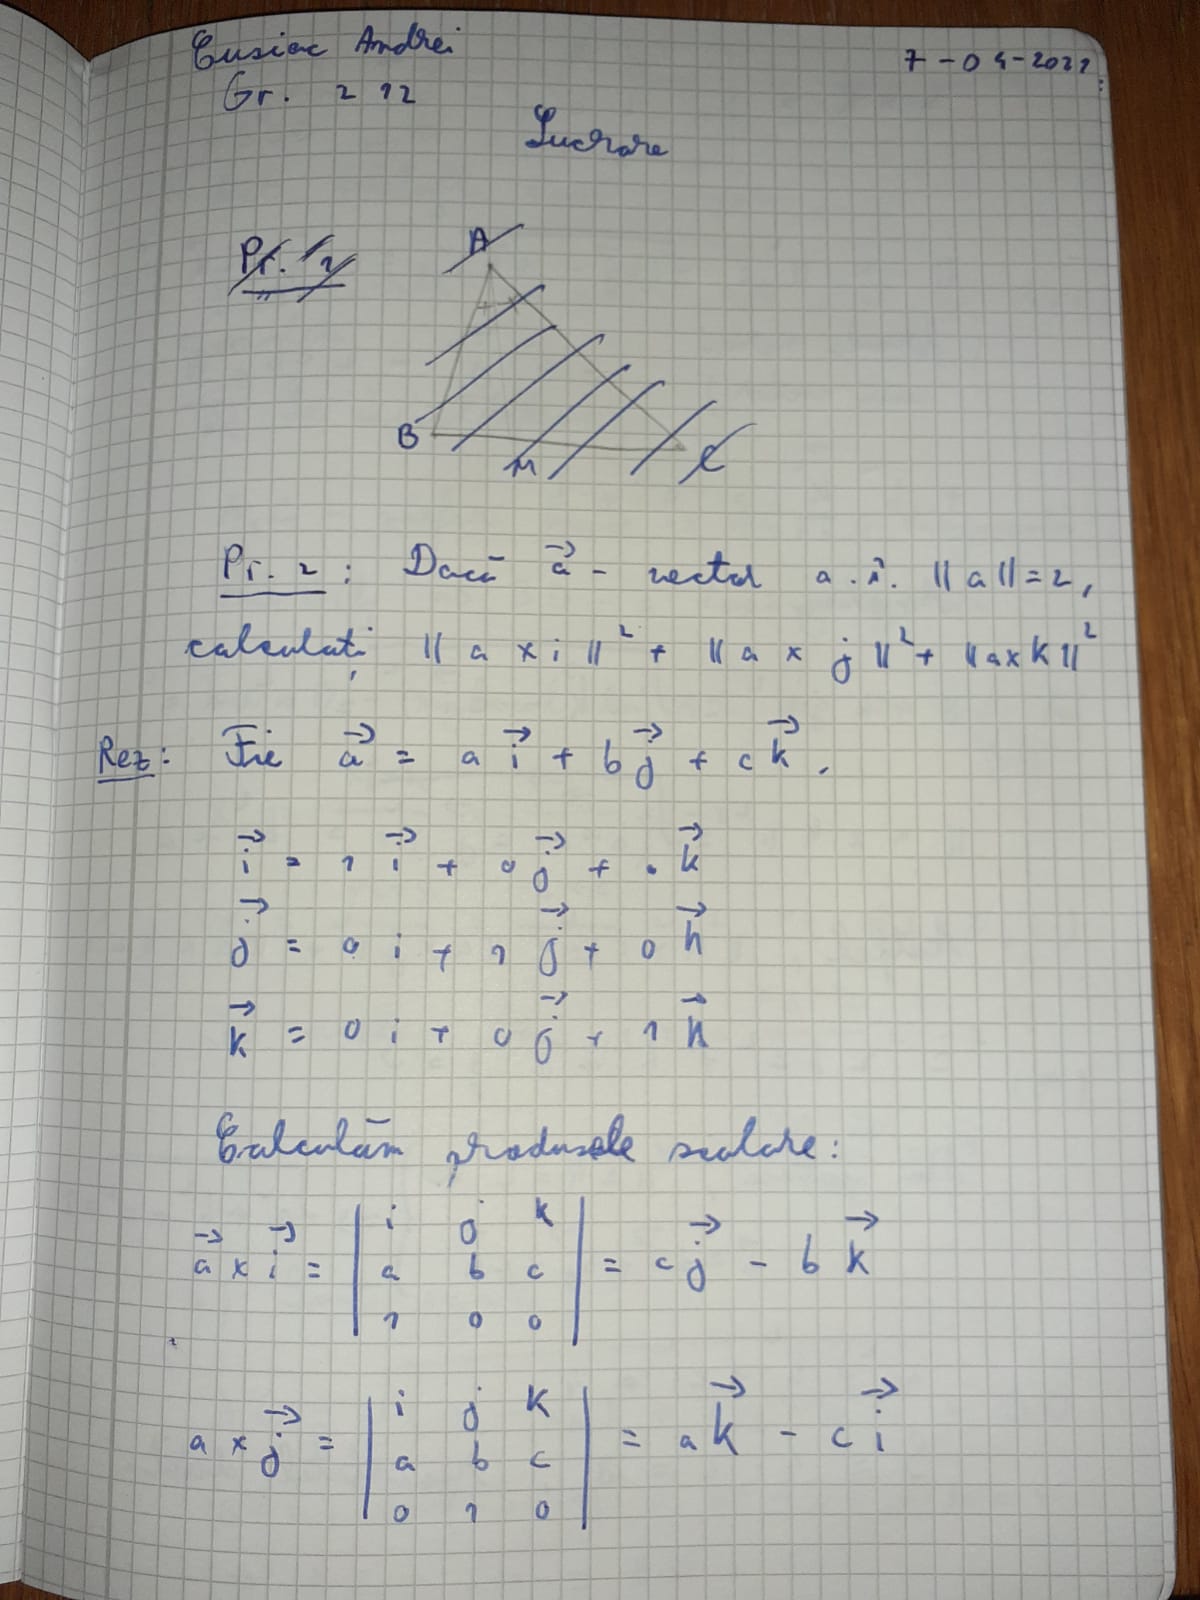 Cusiac Andrei
7-04-2021
Gr. 212
Lucrare
Pr. 2
A
B
M
C
Pr. 2: Dacă a⃗ - vector a.î. ||a|| = 2,
calculați ||a x i||² + ||a x j||² + ||a x k||²
Rez: Fie a⃗ = a i⃗ + b j⃗ + c k⃗.
i⃗ = 1 i⃗ + 0 j⃗ + 0 k⃗
j⃗ = 0 i + 1 j⃗ + 0 k⃗
k⃗ = 0 i + 0 j⃗ + 1 k⃗
Calculăm produsele scalare:
a⃗ x i⃗ = | i j k |
| a b c | = c j⃗ - b k⃗
| 1 0 0 |
a x j⃗ = | i j k |
| a b c | = a k⃗ - c i⃗
| 0 1 0 |